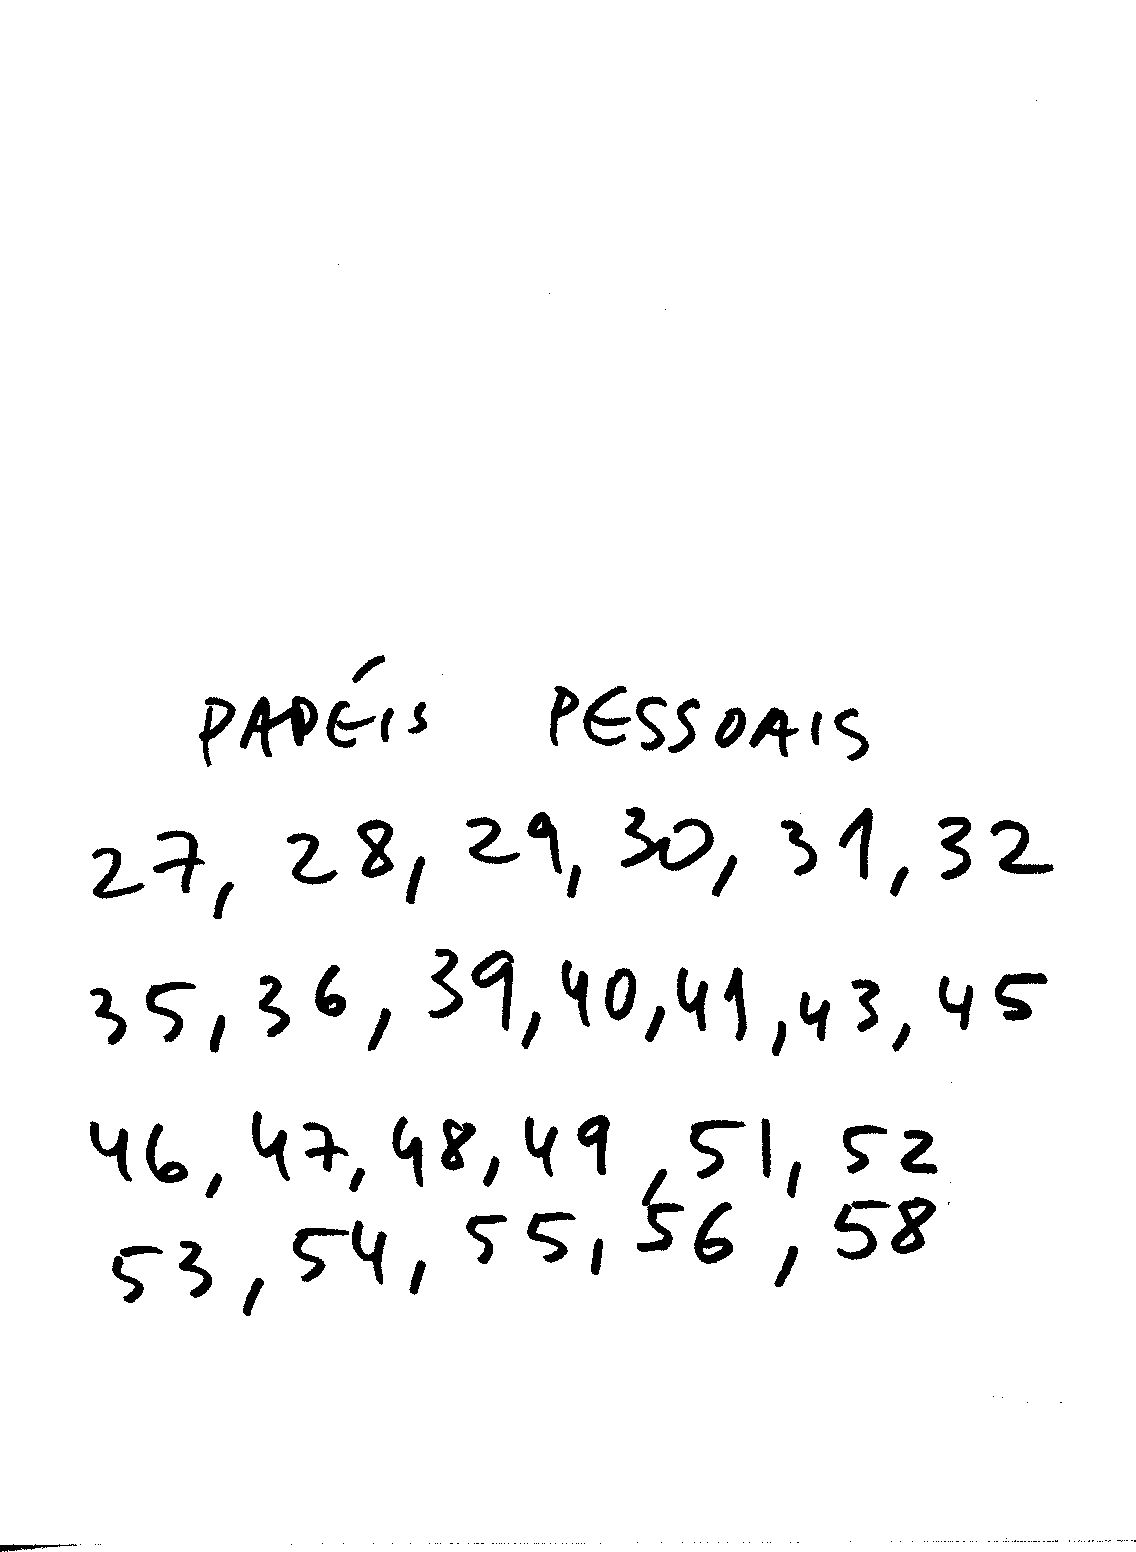 PAPÉIS PESSOAIS
27, 28, 29, 30, 31, 32
35, 36, 39, 40, 41, 43, 45
46, 47, 48, 49, 51, 52
53, 54, 55, 56, 58